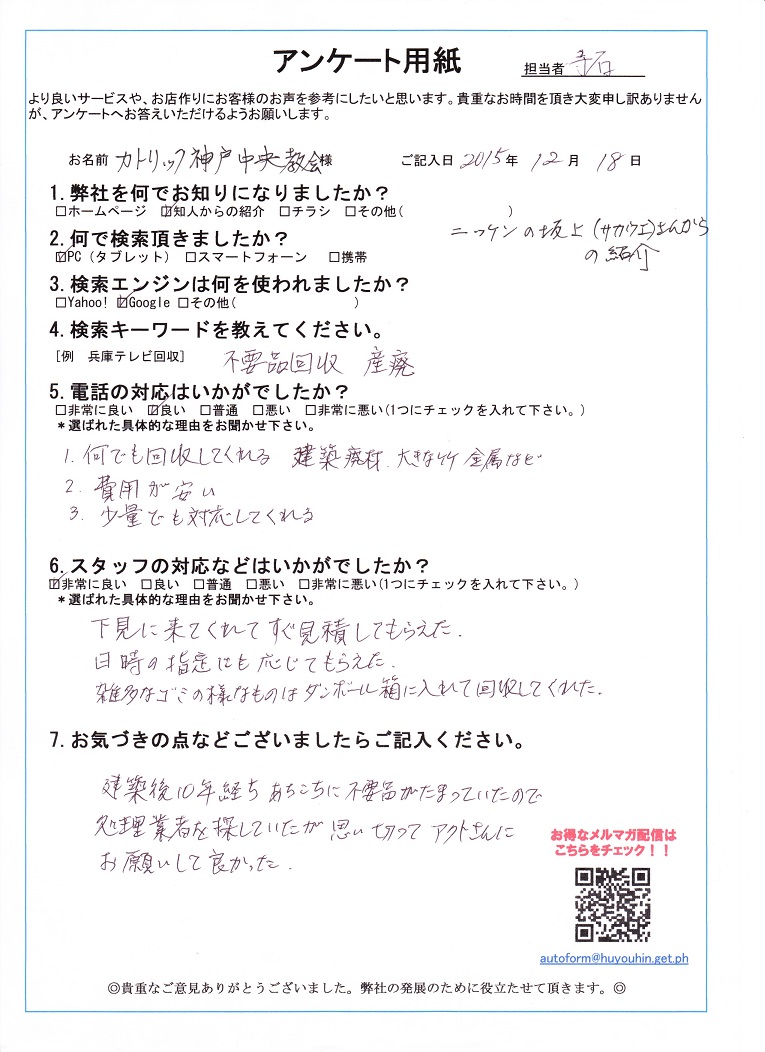 アンケート用紙
担当者 寺石
より良いサービスや、お店作りにお客様のお声を参考にしたいと思います。貴重なお時間を頂き大変申し訳ありません
が、アンケートへお答えいただけるようお願いします。
お名前 カトリック神戸中央教会様 ご記入日 2015年 12月 18日
1.弊社を何でお知りになりましたか？
□ホームページ ☑知人からの紹介 □チラシ □その他( )
ニッケンの坂上(サカウエ)さんから
の紹介
2.何で検索頂きましたか？
☑PC（タブレット） □スマートフォーン □携帯
3.検索エンジンは何を使われましたか？
□Yahoo! ☑Google □その他( )
4.検索キーワードを教えてください。
[例 兵庫テレビ回収] 不要品回収 産廃
5.電話の対応はいかがでしたか？
□非常に良い ☑良い □普通 □悪い □非常に悪い(1つにチェックを入れて下さい。)
＊選ばれた具体的な理由をお聞かせ下さい。
1. 何でも回収してくれる 建築廃材、大きな竹 金属など
2. 費用が安い
3. 少量でも対応してくれる
6.スタッフの対応などはいかがでしたか？
☑非常に良い □良い □普通 □悪い □非常に悪い(1つにチェックを入れて下さい。)
＊選ばれた具体的な理由をお聞かせ下さい。
下見に来てくれてすぐ見積してもらえた.
日時の指定にも応じてもらえた.
雑多なゴミの様なものはダンボール箱に入れて回収してくれた.
7.お気づきの点などございましたらご記入ください。
建築後10年経ち あちこちに不要品がたまっていたので
処理業者を探していたが 思い切って アクトさんに
お願いして良かった.
お得なメルマガ配信は
こちらをチェック！！
autoform@huyouhin.get.ph
◎貴重なご意見ありがとうございました。弊社の発展のために役立たせて頂きます。◎